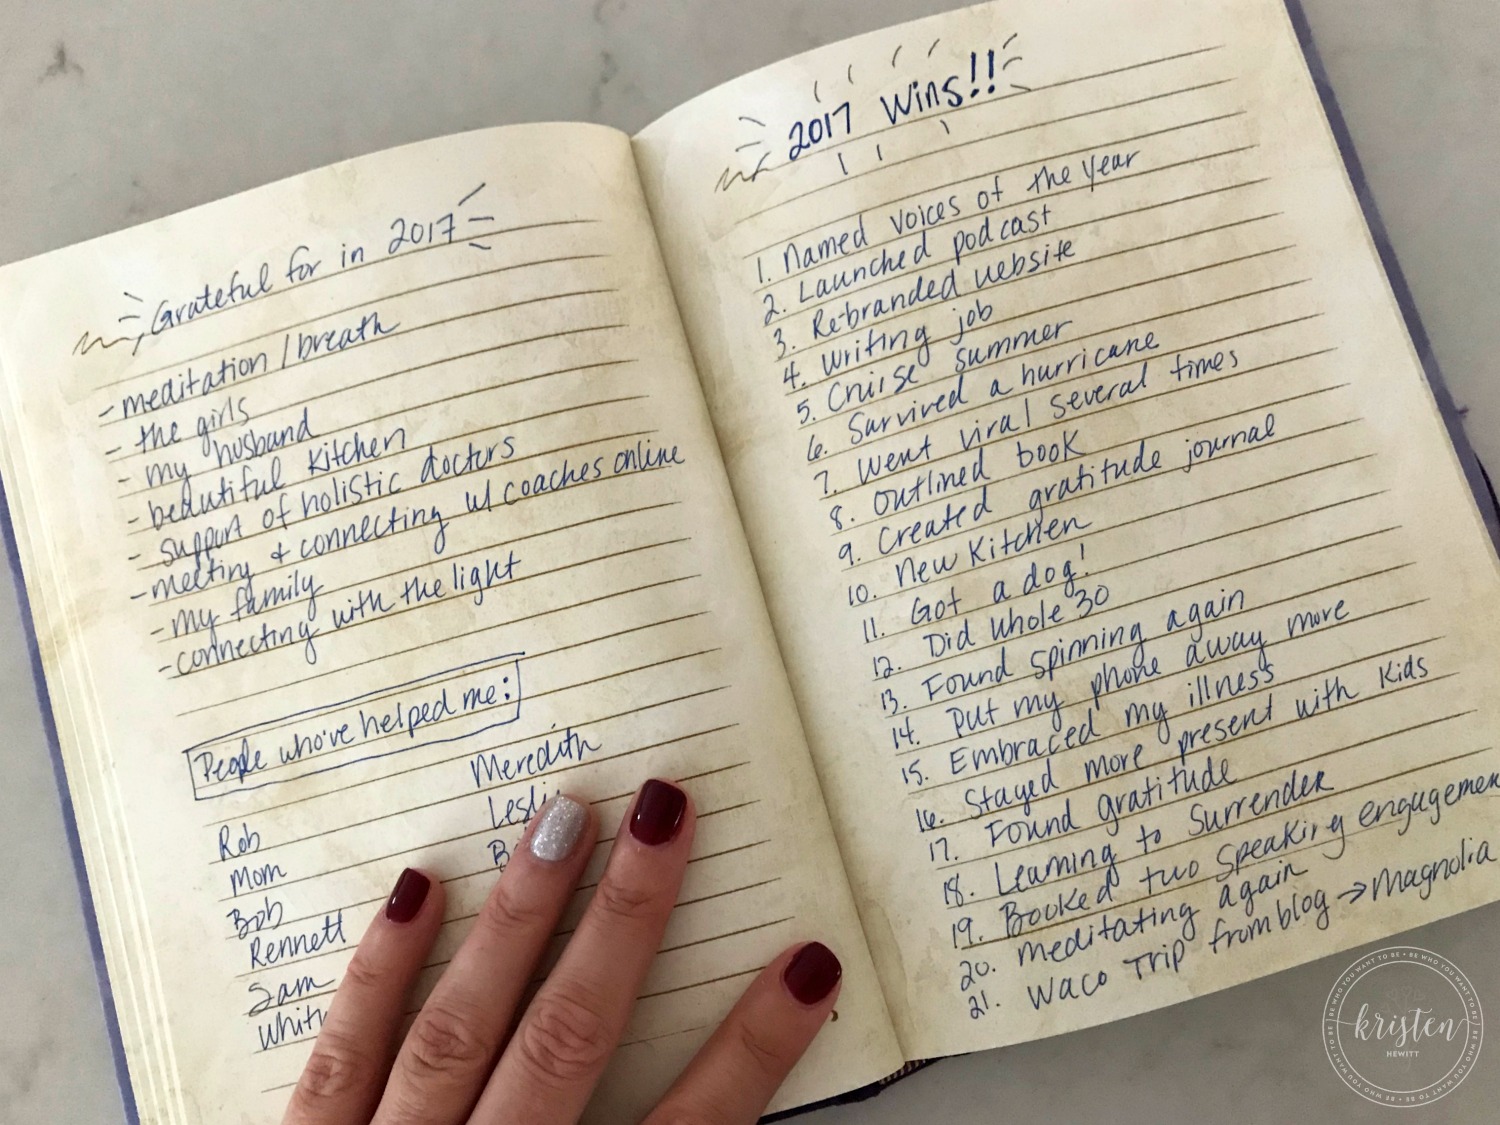 Grateful for in 2017
- meditation / breath
- the girls
- my husband
- beautiful kitchen
- support of holistic doctors
- meeting & connecting w/ coaches online
- my family
- connecting with the light
People who've helped me:
Rob
Mom
Bob
Rennett
Sam
Meredith
2017 Wins!!
1. Named voices of the year
2. Launched podcast
3. Re-branded website
4. Writing job
5. Cruise summer
6. Survived a hurricane
7. Went viral several times
8. Outlined book
9. Created gratitude journal
10. New Kitchen
11. Got a dog!
12. Did whole 30
13. Found spinning again
14. Put my phone away more
15. Embraced my illness
16. Stayed more present with kids
17. Found gratitude
18. Learning to surrender
19. Booked two speaking engagemen
20. Meditating again
21. Waco Trip from blog → Magnolia
kristen
HEWITT
BE WHO YOU WANT TO BE • BE WHO YOU WANT TO BE • BE WHO YOU WANT TO BE •